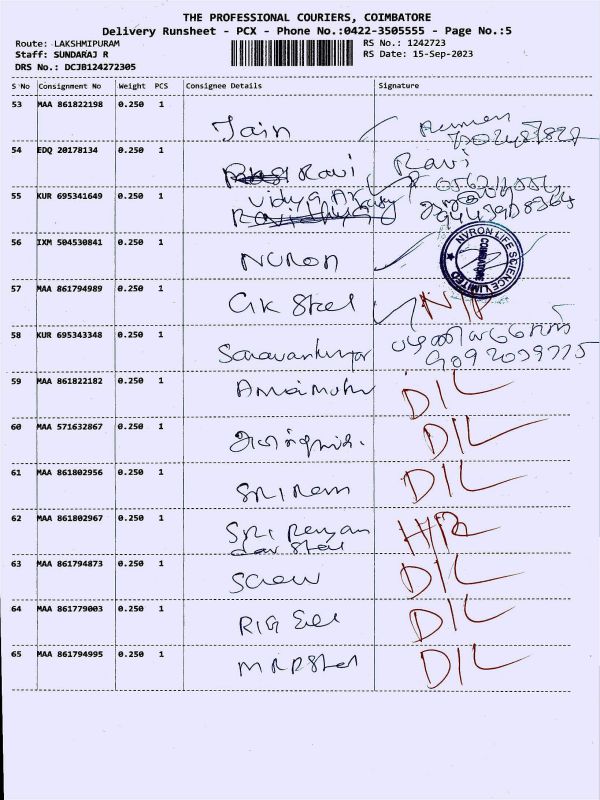 THE PROFESSIONAL COURIERS, COIMBATORE
Delivery Runsheet - PCX - Phone No.:0422-3505555 - Page No.:5
Route: LAKSHMIPURAM RS No.: 1242723
Staff: SUNDARAJ R RS Date: 15-Sep-2023
DRS No.: DCJB124272305
S No Consignment No Weight PCS Consignee Details Signature
53 MAA 861822198 0.250 1
Jain
54 EDQ 20178134 0.250 1
Ravi Ravi
55 KUR 695341649 0.250 1
Vidya
56 IXM 504530841 0.250 1
NURON
NVRON LIFE SCIENCE LIMITED
COIMBATORE
57 MAA 861794989 0.250 1
GK Steel N/P
58 KUR 695343348 0.250 1
Saravankumar
59 MAA 861822182 0.250 1
D/L
60 MAA 571632867 0.250 1
D/L
61 MAA 861802956 0.250 1
SRI Ram D/L
62 MAA 861802967 0.250 1
SRI
63 MAA 861794873 0.250 1
Screw D/L
64 MAA 861779003 0.250 1
D/L
65 MAA 861794995 0.250 1
MRP Steel D/L